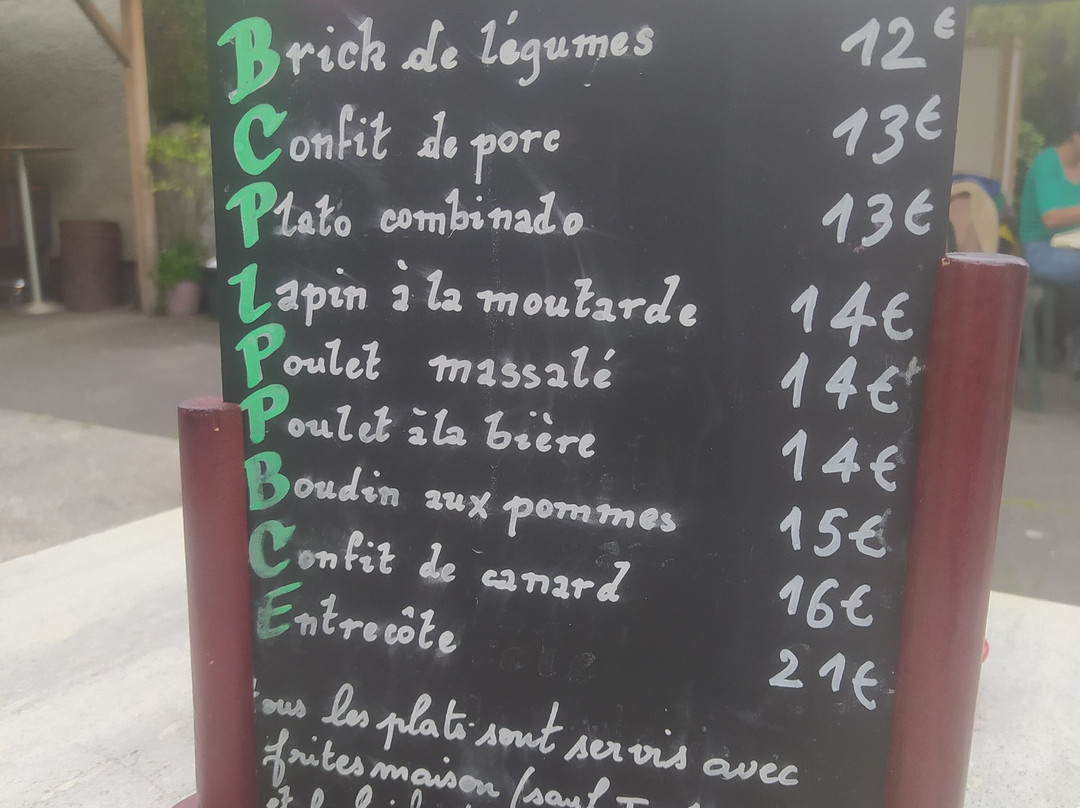 Brick de légumes 12€
Confit de porc 13€
Plato combinado 13€
Lapin à la moutarde 14€
Poulet massalé 14€
Poulet à la bière 14€
Boudin aux pommes 15€
Confit de canard 16€
Entrecôte 21€
tous les plats sont servis avec
frites maison (sauf
et